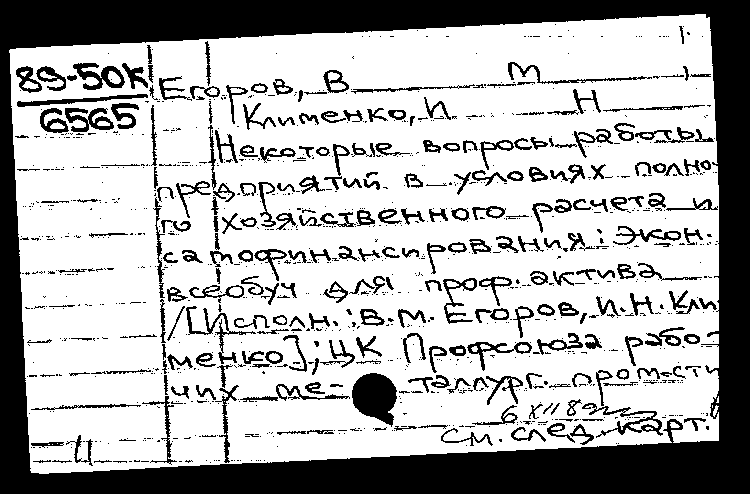 89-50к
6565
Егоров, В М
Клименко, И Н
Некоторые вопросы работы
предприятий в условиях полно-
го хозяйственного расчета и
самофинансирования: Экон.
всеобуч для проф. актива
/[Исполн.: В.М. Егоров, И.Н. Кли-
менко]; ЦК Профсоюза рабо-
чих ме- таллург. пром-сти
6 XII 89
см. след. карт.